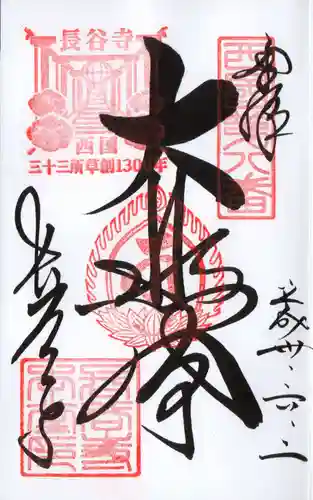 奉拝
西国第八番
大悲閣
長谷寺
西国
三十三所草創1300年
長谷寺
平成卅、六、二